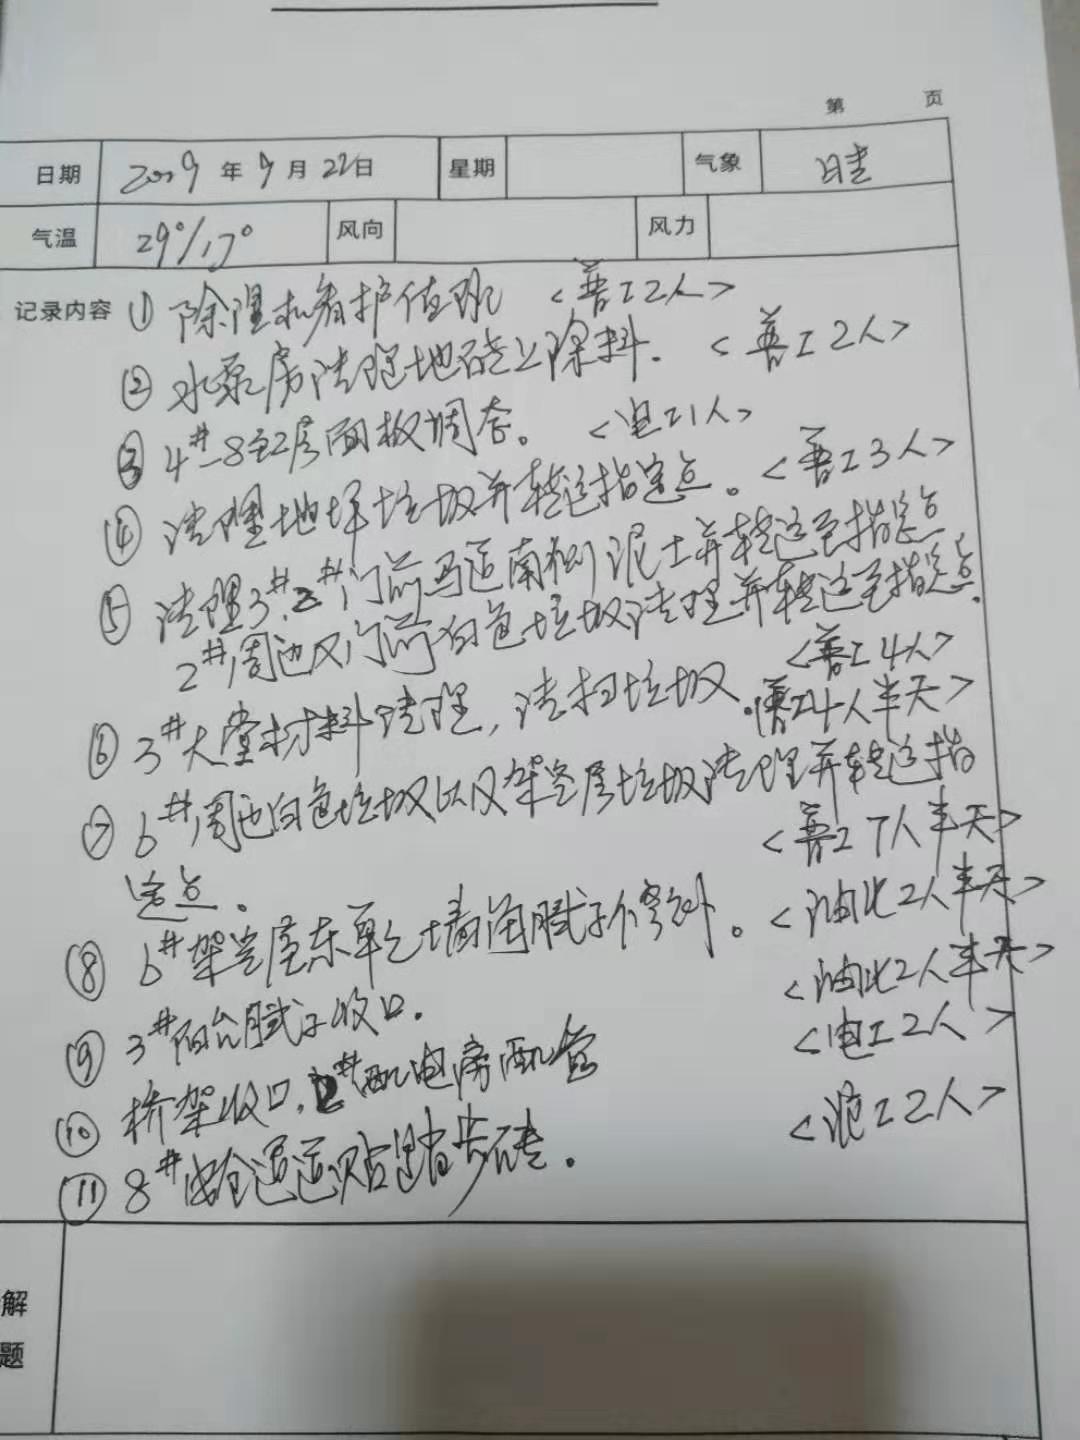 第 页
日期 2009年9月22日 星期 气象 晴
气温 29°/17° 风向 风力
记录内容 ① 除湿机看护值班 <普工2人>
② 水泵房清理地砖上除料. <普工2人>
③ 4#-8至2层面板调查。 <电工1人>
④ 清理地坪垃圾并转运指定点。 <普工3人>
⑤ 清理3#.2#门前马道南侧泥土并转运至指定点
2#周边及门前白色垃圾清理并转运至指定点.
<普工4人>
⑥ 3#大堂材料清理,清扫垃圾.<普工4人半天>
⑦ 6#周边白色垃圾以及架空层垃圾清理并转运指
定点。 <普工7人半天>
⑧ 6#架空层东单元墙面腻子修补。 <油化2人半天>
⑨ 3#阳台腻子收口. <油化2人半天>
⑩ 桥架收口,2#配电房配管 <电工2人>
⑪ 8#安全通道贴踏步砖. <泥工2人>
解
题